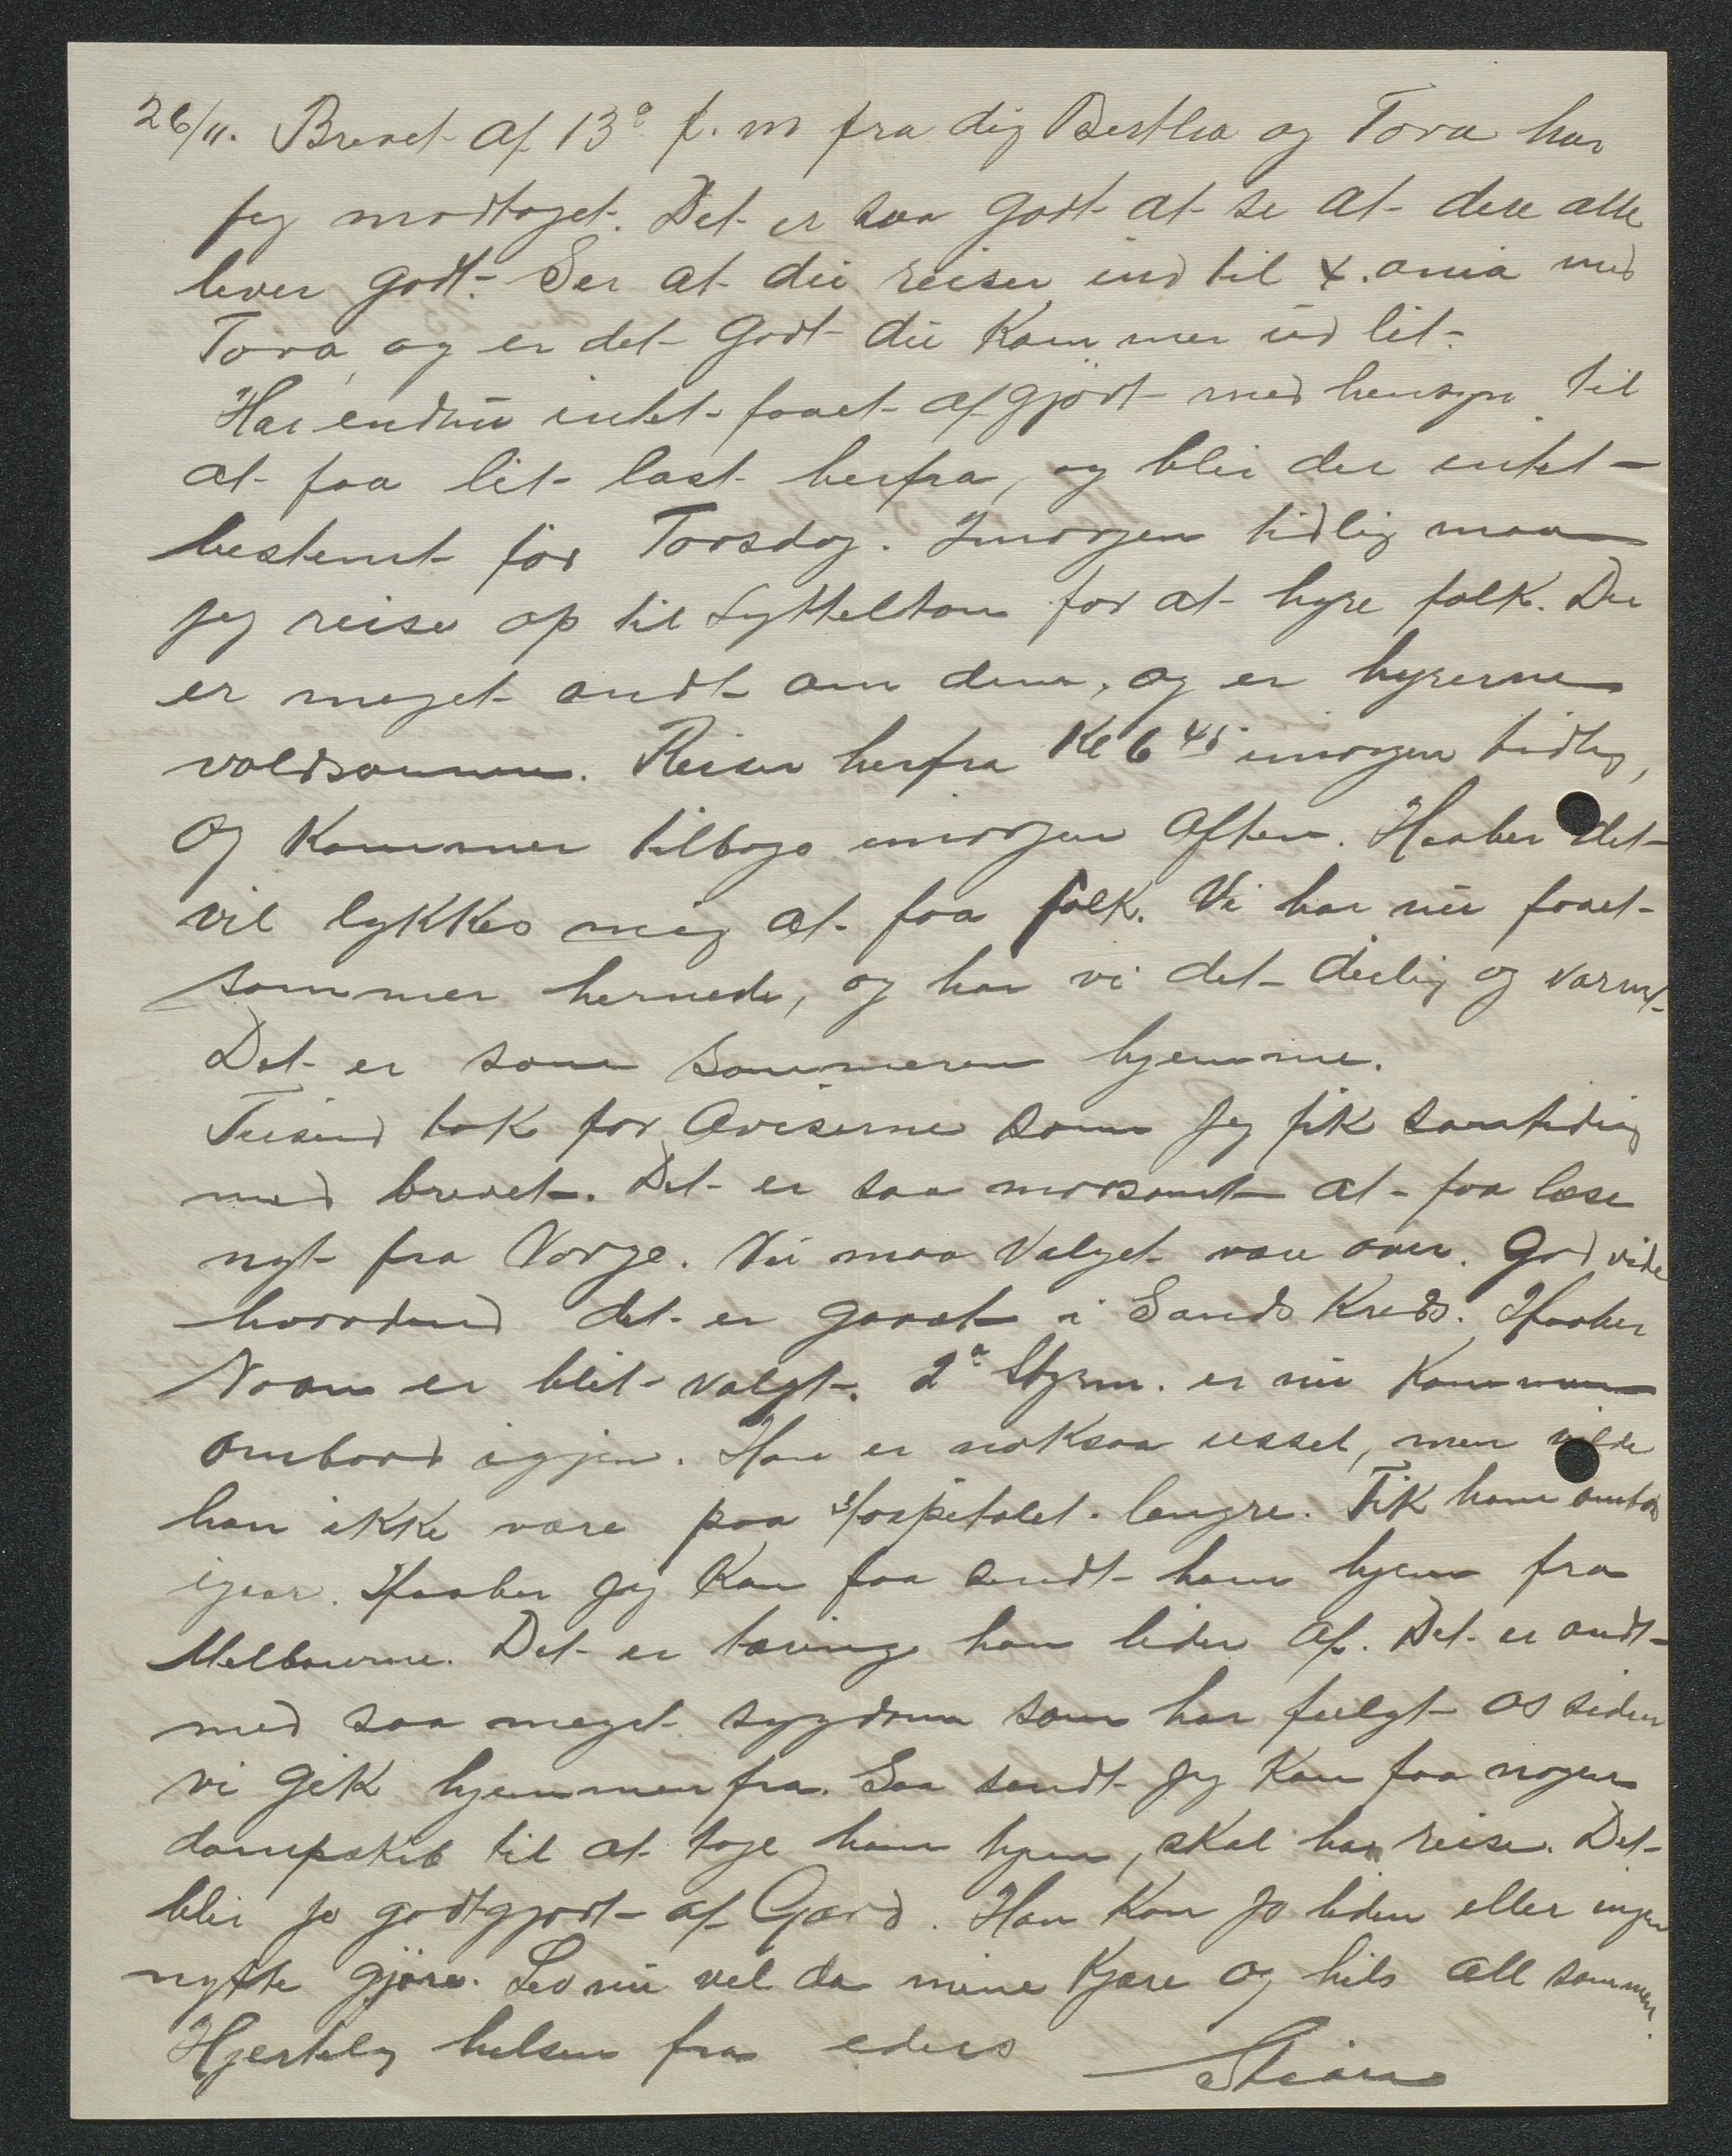 26/11. Brevet af 13º f. m fra dig Bertha og Tora har
jeg modtaget. Det er saa godt at se at dere alle
lever godt. Ser at du reiser ind til X.ania med
Tora, og er det godt du kommer ud lit.
Har endnu intet faaet afgjort med hensyn til
at faa lit last herfra, og blir der intet
bestemt før Torsdag. Imorgen tidlig maa
jeg reise op til Lyttelton for at hyre folk. Der
er meget ondt om dem, og er hyrerne
voldsomme. Reiser herfra Kl 6 45 imorgen tidlig,
og kommer tilbage imorgen aften. Haaber det
vil lykkes mig at faa folk. Vi har nu faaet
sommer hernede, og har vi det deilig og varmt.
Det er som sommeren hjemme.
Tusind tak for Aviserne som jeg fik samtidig
med brevet. Det er saa morsomt at faa læse
nyt fra Norge. Nu maa Valget være over. Gud vide
hvordand det er gaaet i Sands Kreds. Haaber
er blit valgt. 2ª Styrm. er nu kommen
ombord igjen. Han er noksaa ussel, men vilde
han ikke være paa Hospitalet lengre. Fik ham ombord
igaar. Haaber jeg kan faa sendt ham hjem fra
Melbourne. Det er tæring han lider af. Det er ondt
med saa meget sygdom som har fulgt os siden
vi gik hjemmenfra. Saa sandt jeg kan faa nogen
dampskib til at tage ham hjem, skal han reise. Det
blir jo godtgjort af Gard. Han kan jo liden eller ingen
nytte gjøre. Lev nu vel da mine kjære og hils all sammen.
Hjertelig hilsen fra eders